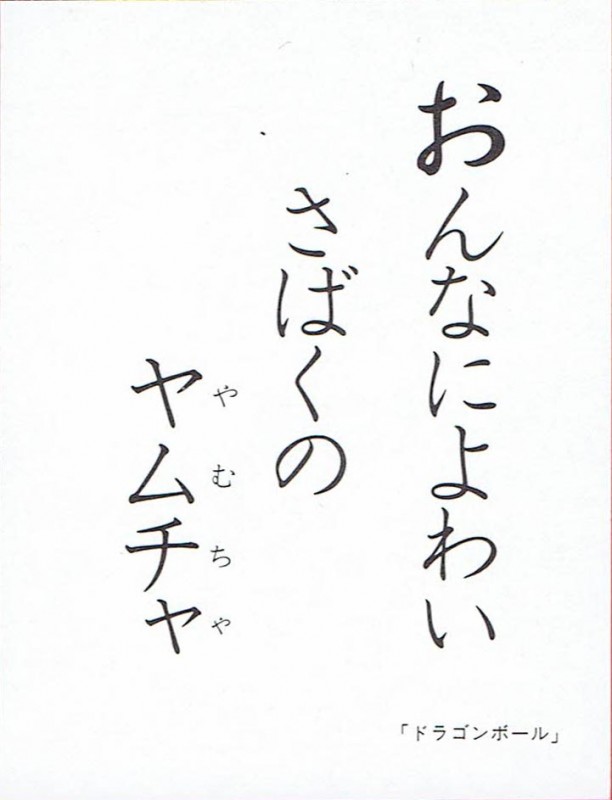 おんなによわい
さばくの
ヤムチャ
やむちゃ
「ドラゴンボール」